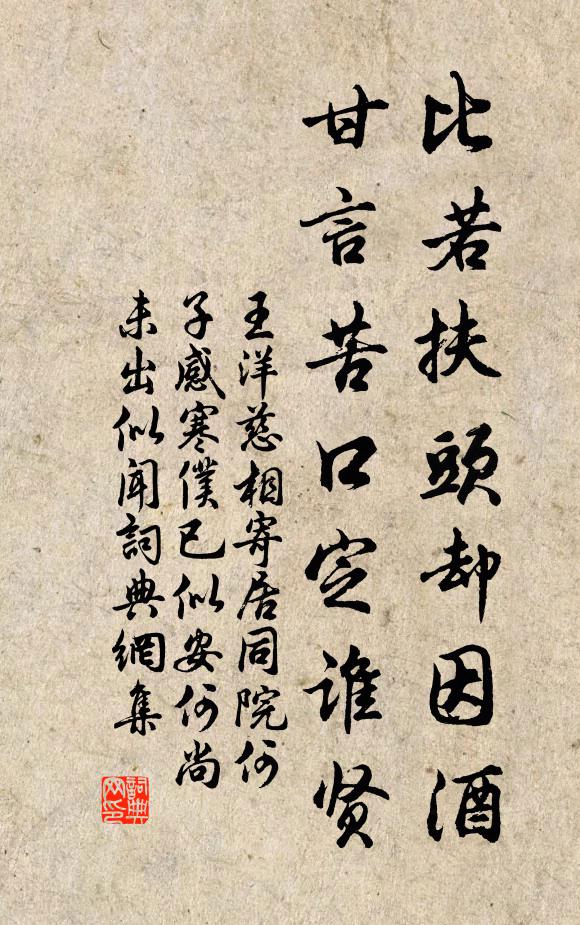 比若扶頭却因酒
甘言苦口定誰贤
王洋慈相寄居同院何
子感寒僕已似安何尚
未出似聞詞典網集
詞典
网印